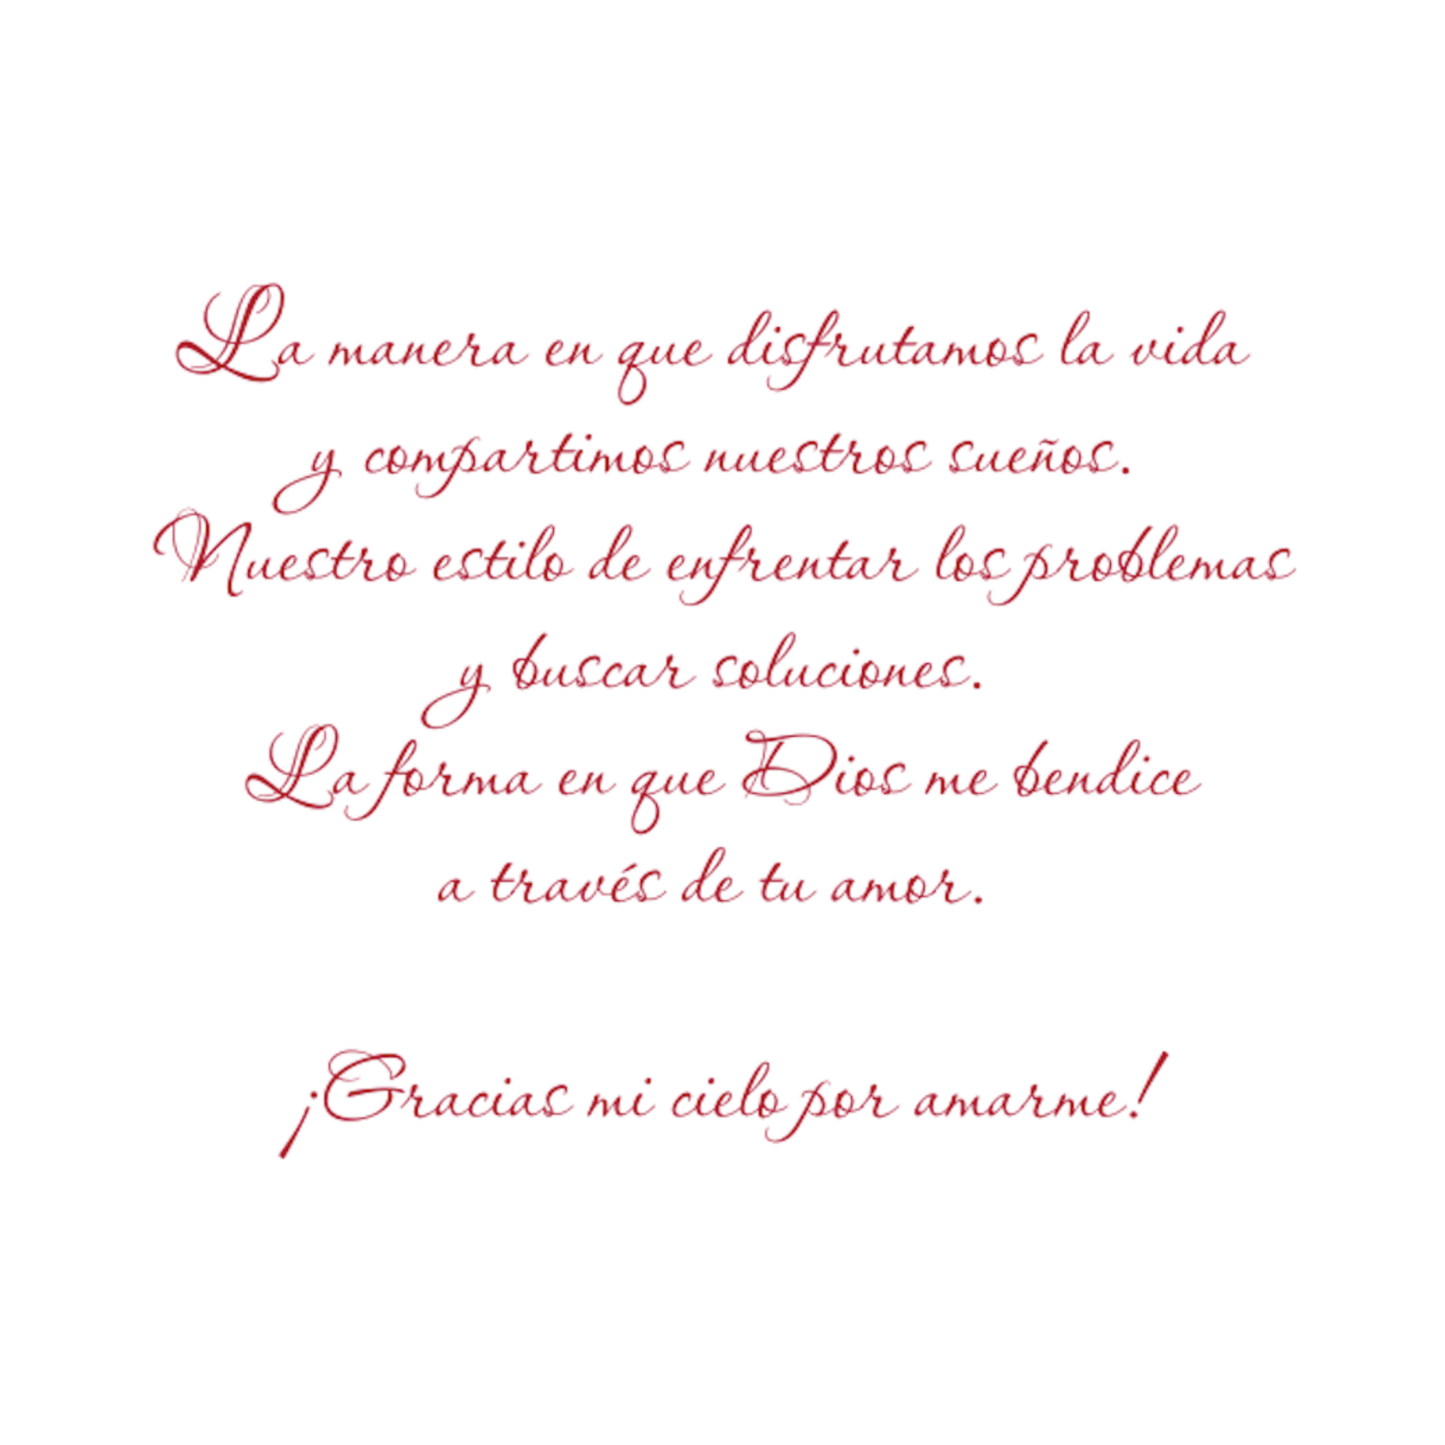 La manera en que disfrutamos la vida
y compartimos nuestros sueños.
Nuestro estilo de enfrentar los problemas
y buscar soluciones.
La forma en que Dios me bendice
a través de tu amor.
¡Gracias mi cielo por amarme!